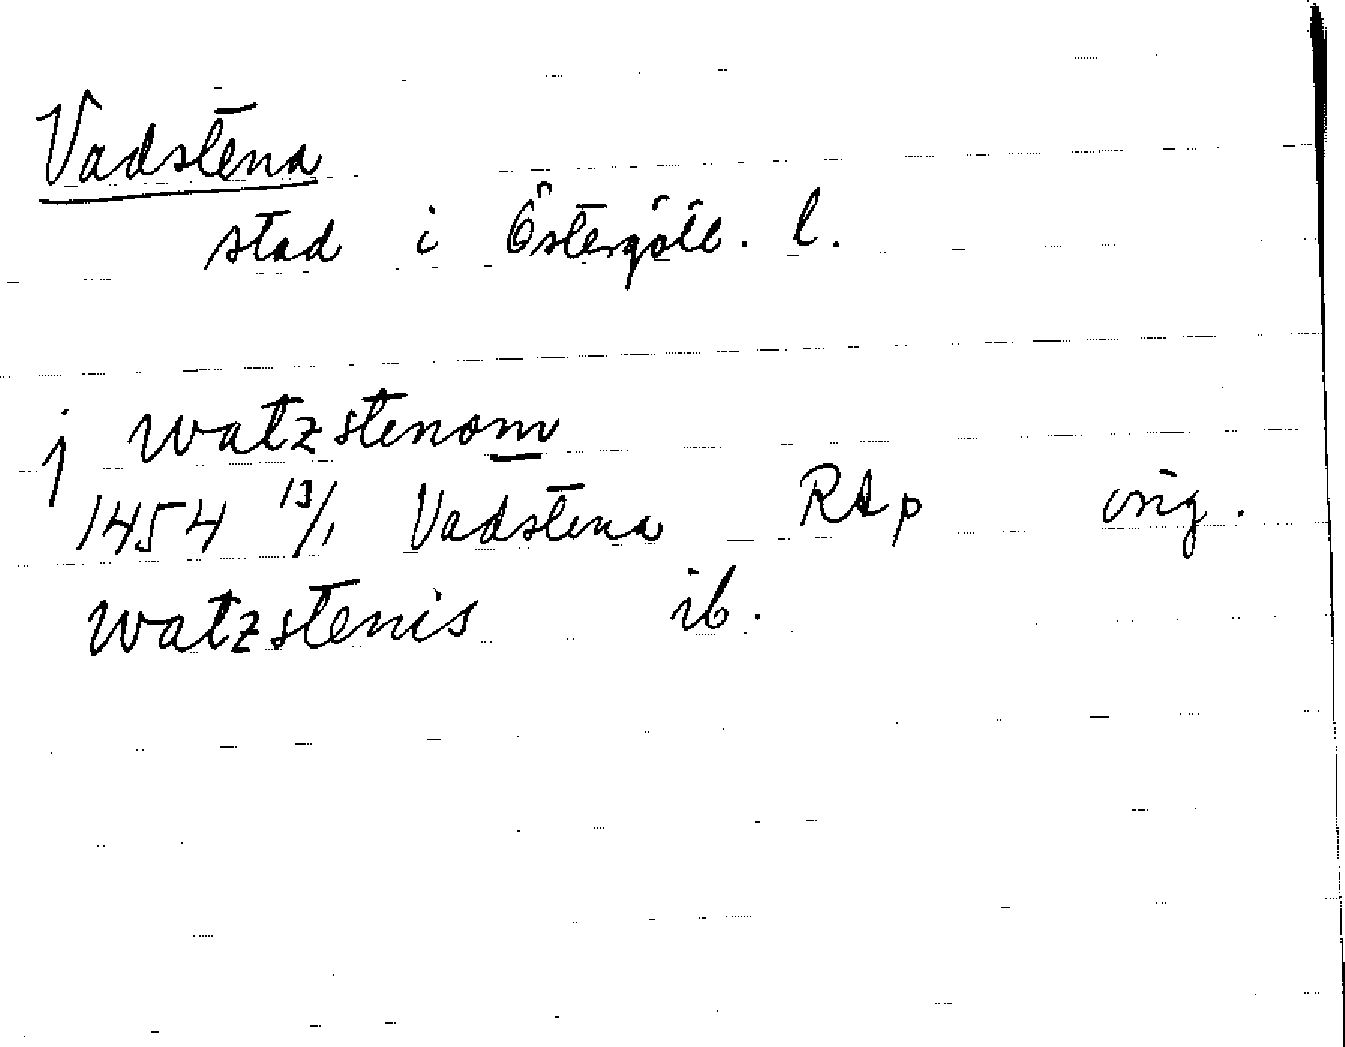 Vadstena
stad i Östergötl. l.
j watzstenom
1454 13/1 Vadstena RAp orig.
watzstenis ib.